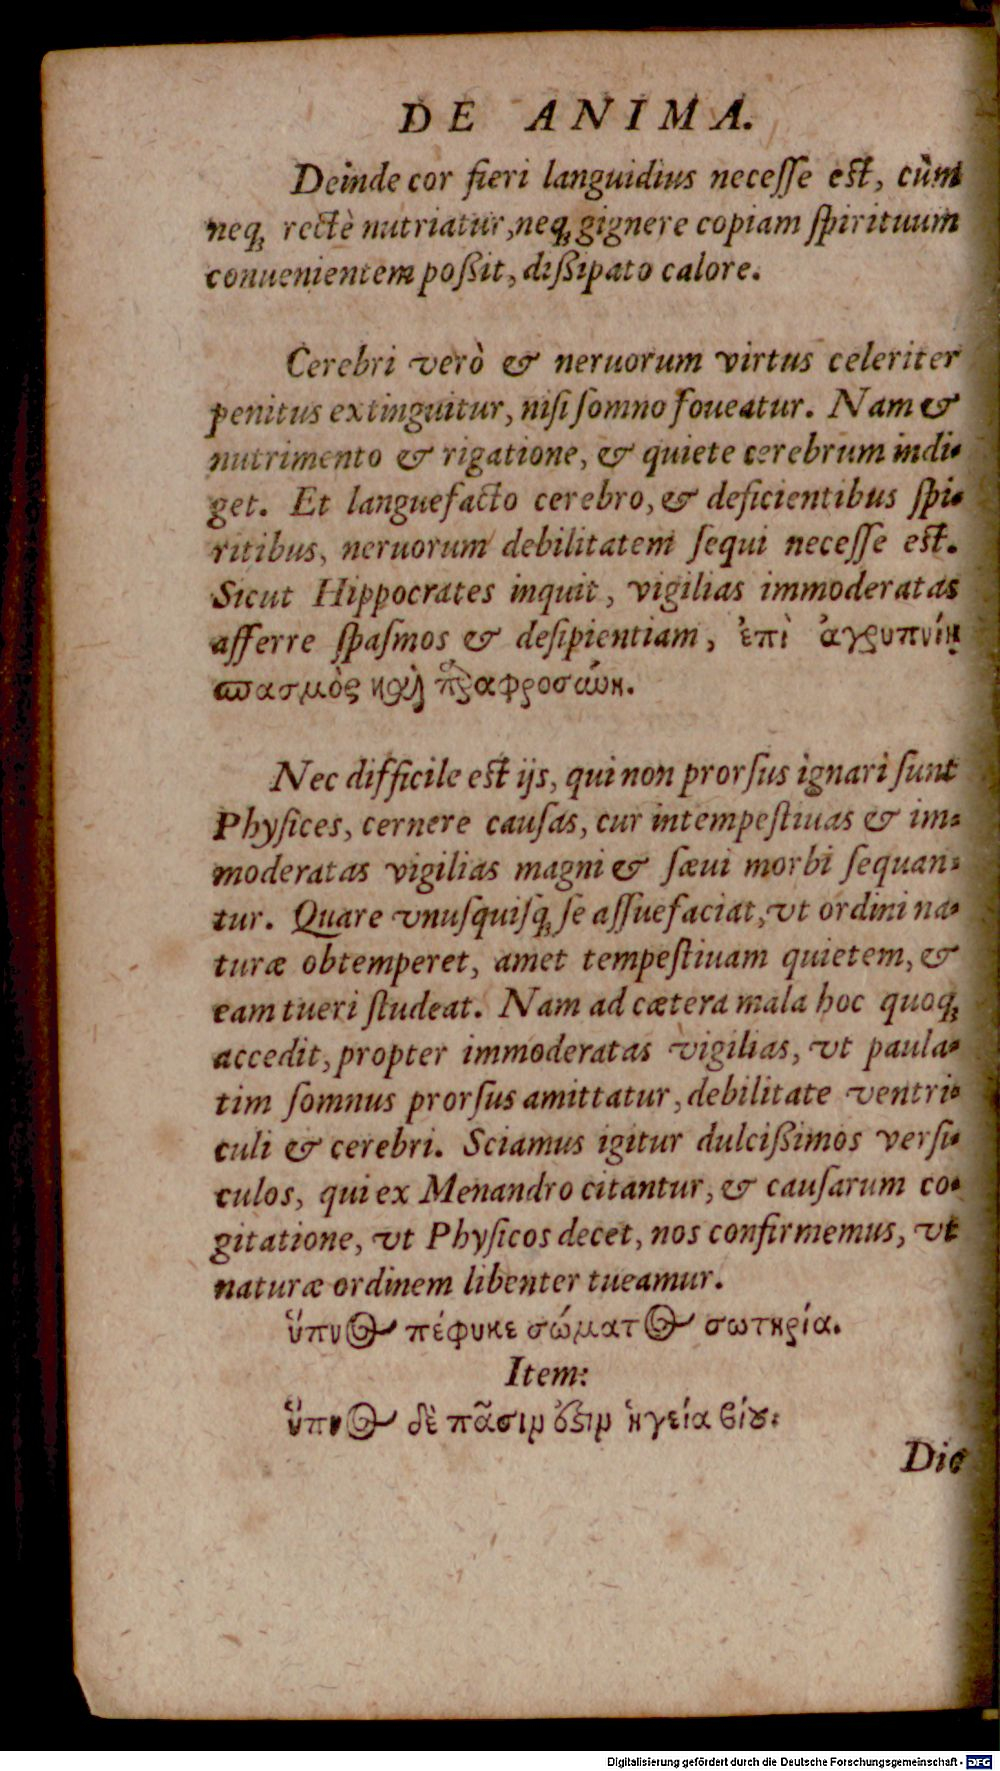 DE ANIMA.
Deinde cor fieri languidius neceſſe eſt, cùm
neq; rectè nutriatur, neq; gignere copiam ſpirituum
conuenientem poßit, dißipato calore.
Cerebri verò & neruorum virtus celeriter
penitus extinguitur, niſi ſomno foueatur. Nam &
nutrimento & rigatione, & quiete cerebrum indi-
get. Et languefacto cerebro, & deficientibus ſpi-
ritibus, neruorum debilitatem ſequi neceſſe eſt.
Sicut Hippocrates inquit, vigilias immoderatas
afferre ſpaſmos & deſipientiam, ἐπὶ ἀγρυπνίῃ
σπασμὸς καὶ παραφροσύνη.
Nec difficile eſt ijs, qui non prorſus ignari ſunt
Phyſices, cernere cauſas, cur intempeſtiuas & im-
moderatas vigilias magni & ſæui morbi ſequan-
tur. Quare vnuſquiſq; ſe aſſuefaciat, vt ordini na-
turæ obtemperet, amet tempeſtiuam quietem, &
eam tueri ſtudeat. Nam ad cætera mala hoc quoq;
accedit, propter immoderatas vigilias, vt paula-
tim ſomnus prorſus amittatur, debilitate ventri-
culi & cerebri. Sciamus igitur dulcißimos verſi-
culos, qui ex Menandro citantur, & cauſarum co-
gitatione, vt Phyſicos decet, nos confirmemus, vt
naturæ ordinem libenter tueamur.
ὕπνος πέφυκε σώματος σωτηρία.
Item:
ὕπνος δὲ πᾶσιν ὅξιν ὑγεία βίου:
Die
Digitalisierung gefördert durch die Deutsche Forschungsgemeinschaft - DFG